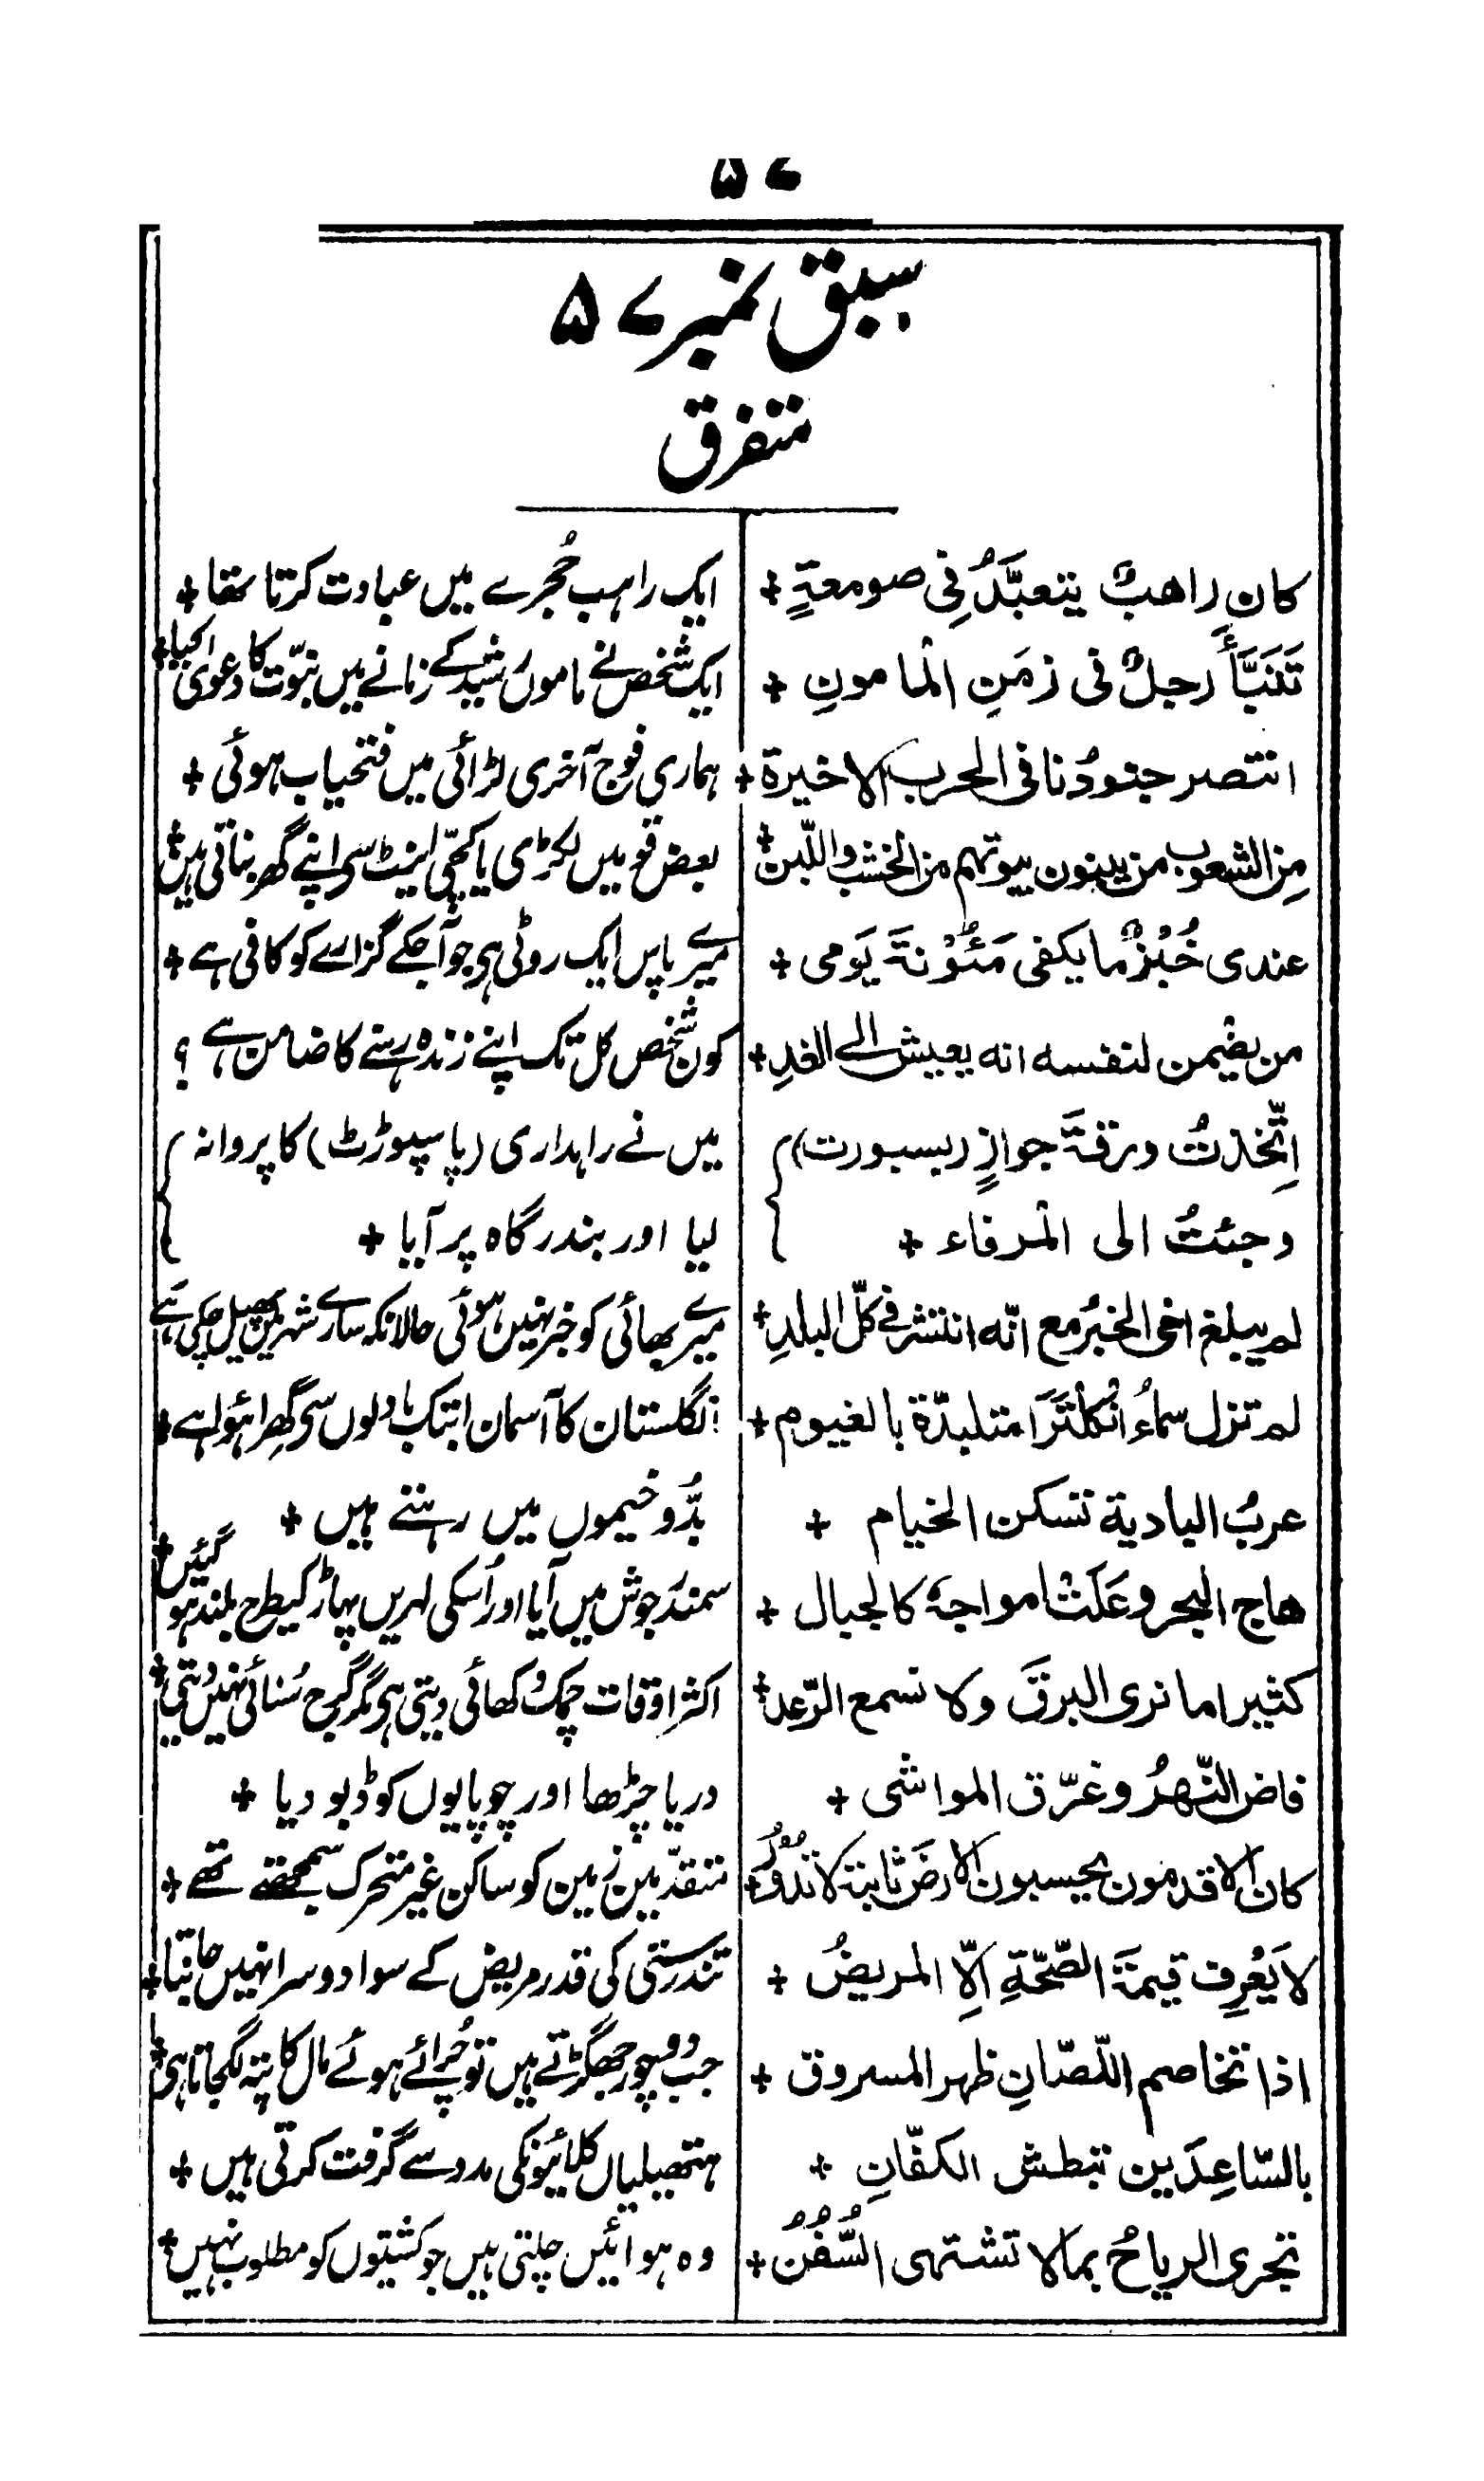 ۵۷
سبق نمبر ۵۷
متفرق
كان راهبٌ يتعبَّدُ فِي صومعةٍ + ایک راہب حُجرے میں عبادت کرتا تھا +
تَنَبَّأَ رجلٌ فی زمَنِ الْمامونِ + ایک شخص نے ماموں رشید کے زمانے میں نبوّت کا دعویٰ کیا +
انتصر جنودُنا فی الحرب الاخیرة + ہماری فوج آخری لڑائی میں فتحیاب ہوئی +
مِن الشعوب من یبنون بیوتهم من الخشب واللّبن + بعض قومیں لکڑی یا کچّی اینٹ سی اپنے گھر بناتی ہیں +
عندی خُبْزٌ ما یکفی مَئُوْنۃَ یَومی + میرے پاس ایک روٹی ہی جو آجکے گزارے کو کافی ہے +
من یضمن لنفسه انه یعیش الے الغدِ + کون شخص کل تک اپنے زندہ رہنے کا ضامن ہے ؟
اِتّخذتُ ورقۃَ جوازٍ (بسبورت) میں نے راہداری (پاسپورٹ) کا پروانہ
وجئتُ الی المرفاء + لیا اور بندرگاہ پر آیا +
لم یبلغ اخی الخبرُ مع انّه انتشر فی کلّ البلدِ + میرے بھائی کو خبر نہیں ہوئی حالانکہ سارے شہر میں پھیل چکی ہے
لم تزل سماءُ انْکلْتَرَا متلبدّة بالغیوم + انگلستان کا آسمان ابتک بادلوں سی گھِرا ہُوا ہے +
عربُ البادیة تسکن الخیام + بدُّو خیموں میں رہتے ہیں +
هاج البحر وعَلَتْ امواجهٗ کالجبال + سمندر جوش میں آیا اور اُسکی لہریں پہاڑ کیطرح بلند ہو گئیں +
کثیرا ما نری البرقَ ولا نسمع الرّعد + اکثر اوقات چمک دکھائی دیتی ہی مگر گرج سُنائی نہیں دیتی +
فاض النّهرُ وغرّق المواشی + دریا چڑھا اور چوپایوں کو ڈبو دیا +
کان الاقدمون یحسبون الارضَ ثابتة لا تدُوْرُ + متقدّمین زمین کو ساکن غیر متحرک سمجھتے تھے +
لا یَعْرِف قیمَۃَ الصّحّۃِ اِلّا المریضُ + تندرستی کی قدر مریض کے سوا دوسرا نہیں جانتا +
اذا تخاصم اللّصّانِ ظهر المسروق + جب دو چور جھگڑتے ہیں تو چُرائے ہوئے مال کا پتہ لگجاتا ہی +
بالسّاعِدَین تبطش الکفّانِ + ہتھیلیاں کلائیونکی مدد سے گرفت کرتی ہیں +
تجری الریاحُ بما لا تشتهی السُّفُن + وہ ہوائیں چلتی ہیں جو کشتیوں کو مطلوب نہیں +